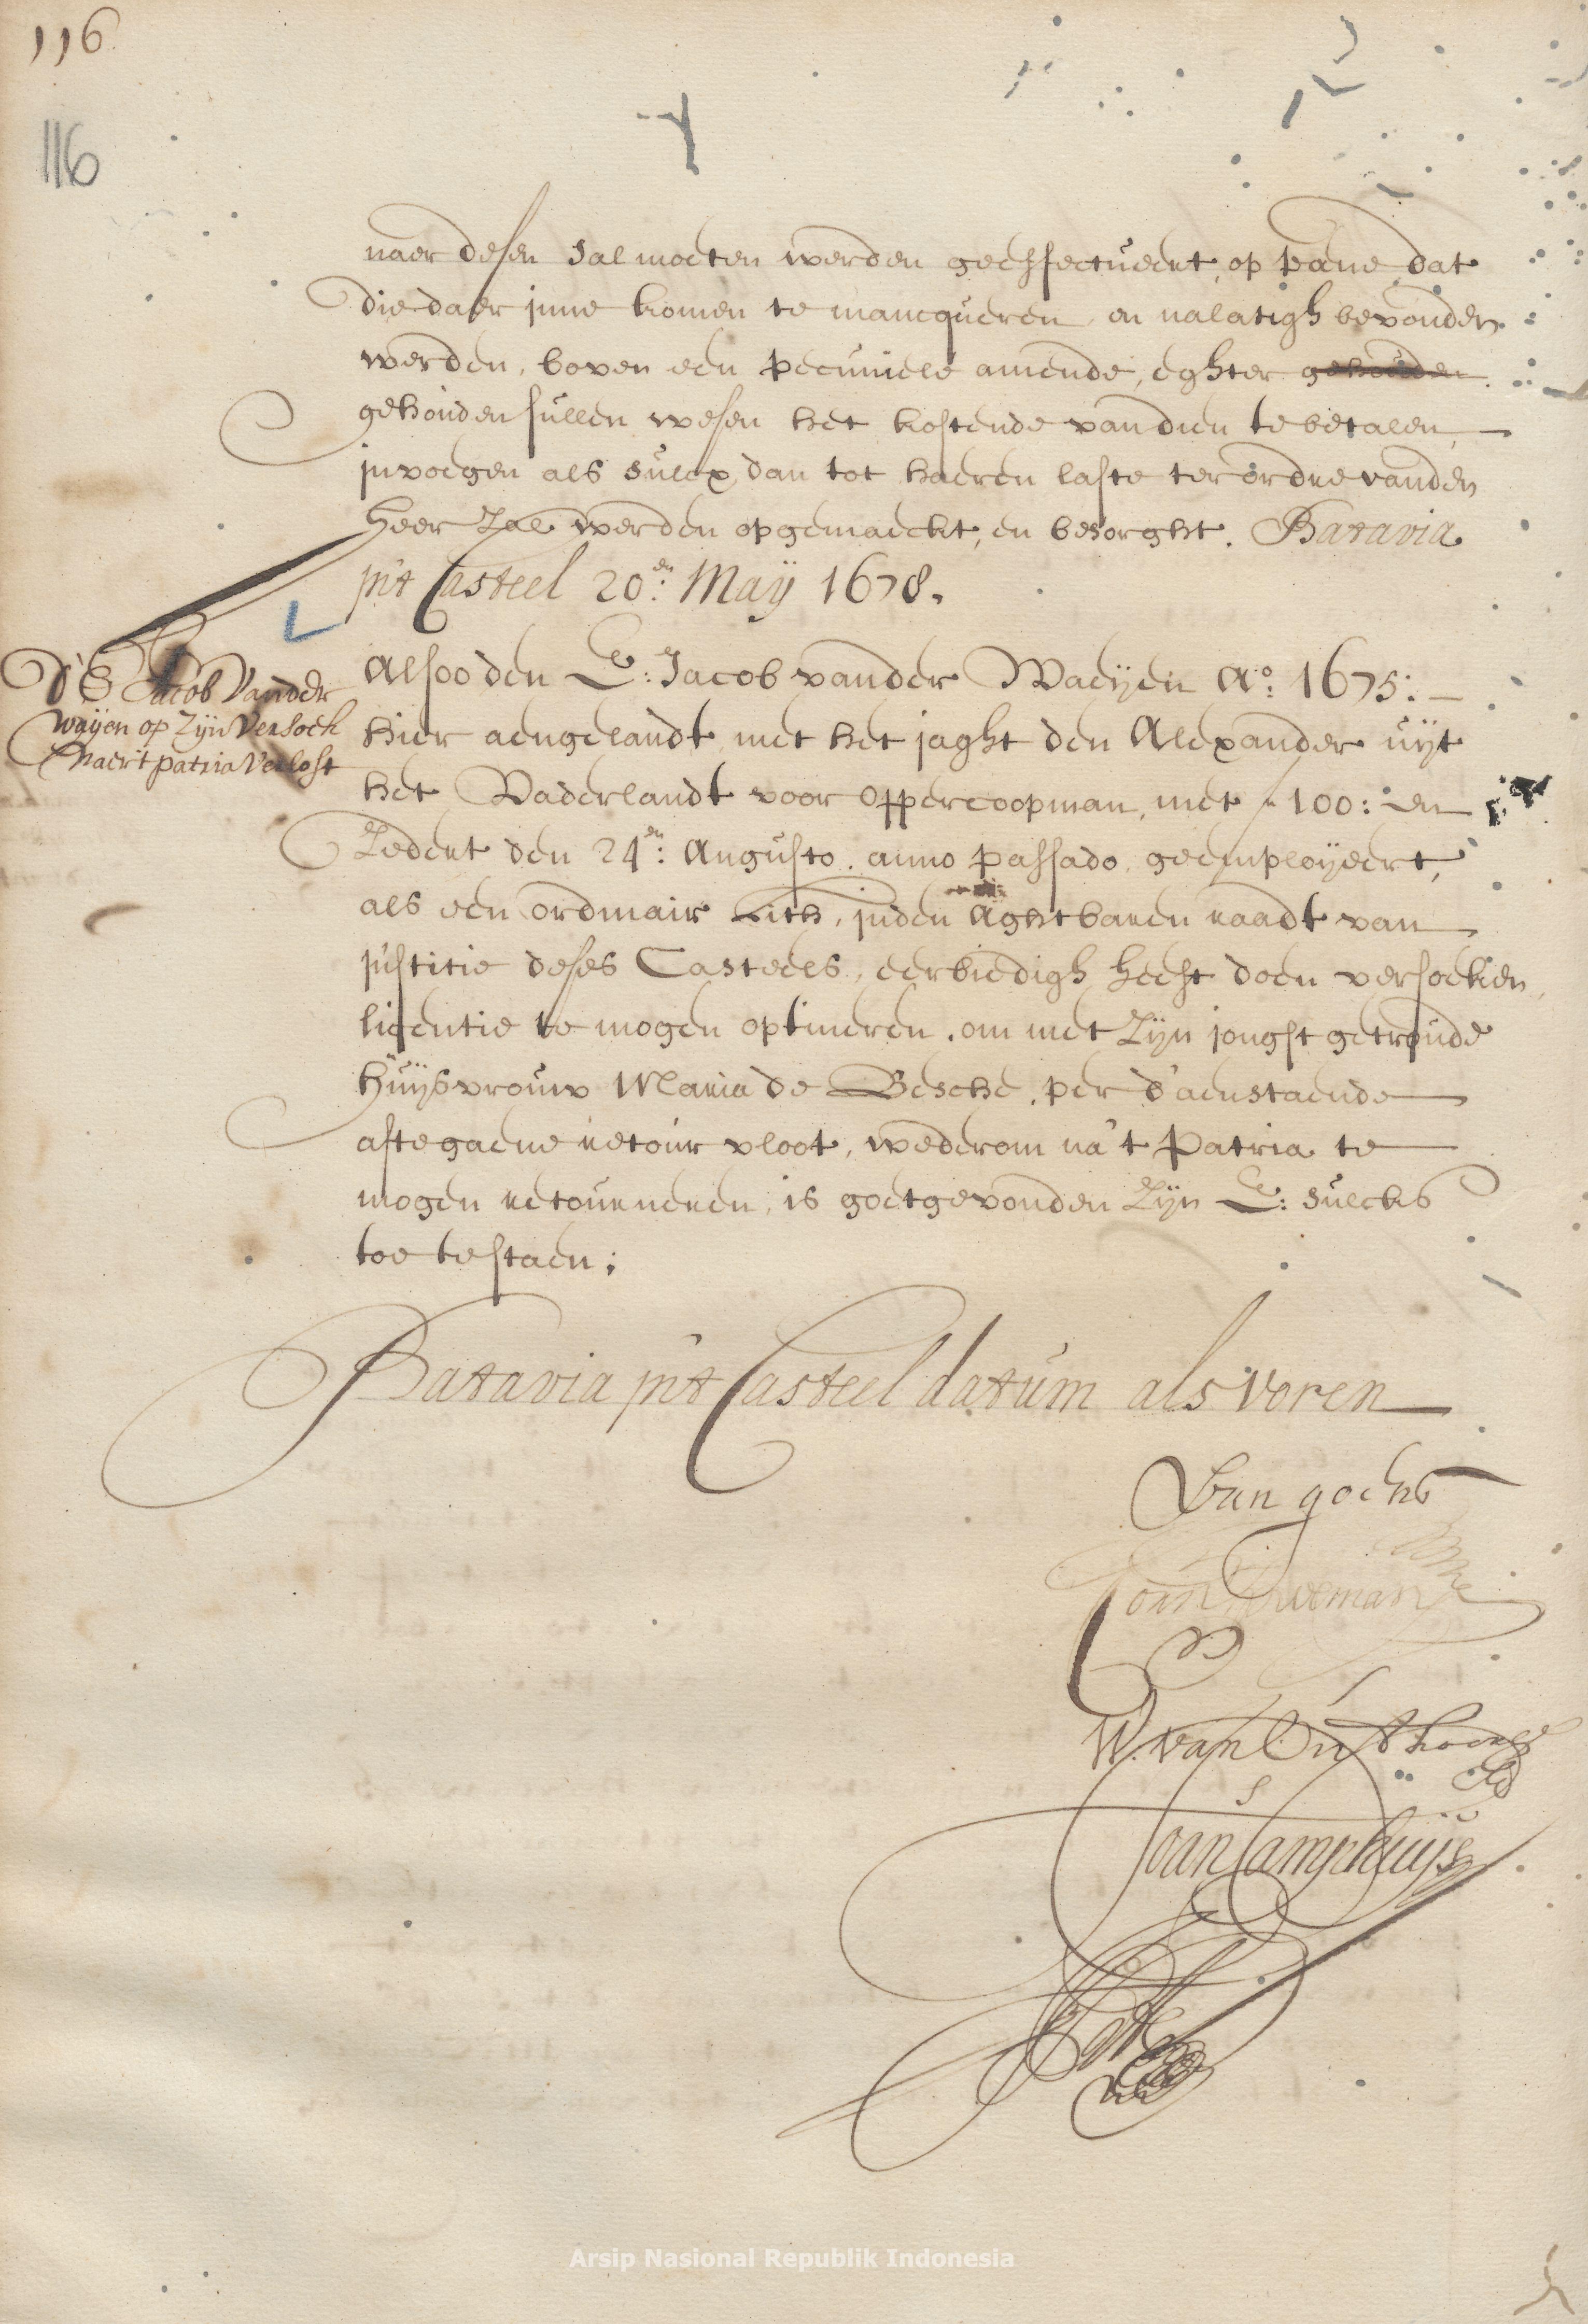 116
116
naer desen sal moeten werden geeffectueert, op pæne, dat
die daer inne komen te mancqueren en nalatigh bevonden
werden, boven een pecuniele amende, eghter gehouden
gehouden sullen wesen het kostende van dien te betalen,
in voegen als sulcx dan tot haeren laste ter ordre vanden
heer zal werden opgemaeckt, en besorght. Batavia
in't Casteel 20en: Maij 1678.
d'E Jacob Vander
Waijen op Zijn Versoek
naer't patria Verlost
Alsoo den E: Jacob vander Waeijen Ao: 1675:
hier aengelandt met het jaght den Alexander uijt
het Vaderlandt voor oppercoopman, met f 100: en
Zedert den 24en: Augusto. anno passado, geemploijeert,
als een ordinair Lith, in den Aghtbaren raadt van
justitie deses Casteels, eerbiedigh heeft doen versoeken,
licentie te mogen optineren, om met Zijn jongst getroude
huijsvrouw Maria de Besche, per d'aenstaende
aftegaene retour vloot, wederom na't Patria te
mogen retourneren, is goetgevonden Zijn E: sulcks
toe te staen;
Batavia in't Casteel datum als voren
van goens
W. van Outhoorn
Joan Camphuijs
Arsip Nasional Republik Indonesia